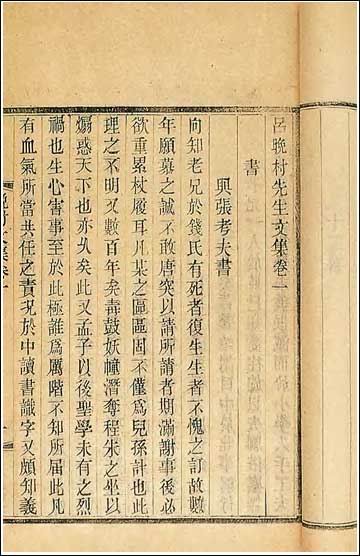 呂晚村先生文集卷一
書
與張考夫書
向知老兄於錢氏有死者復生生者不愧之訂故數
年願慕之誠不敢唐突以請所請者期滿謝事後必
欲重累杖履耳凡某之區區固不僅為兒孫計也此
理之不明又數百年矣毒鼓妖幢潛奪程朱之坐以
煽惑天下也亦久矣此又孟子以後聖學未有之烈
禍也生心害事至於此極誰為厲階不知所屆此凡
有血氣所當共任之責況於中讀書識字又頗知義